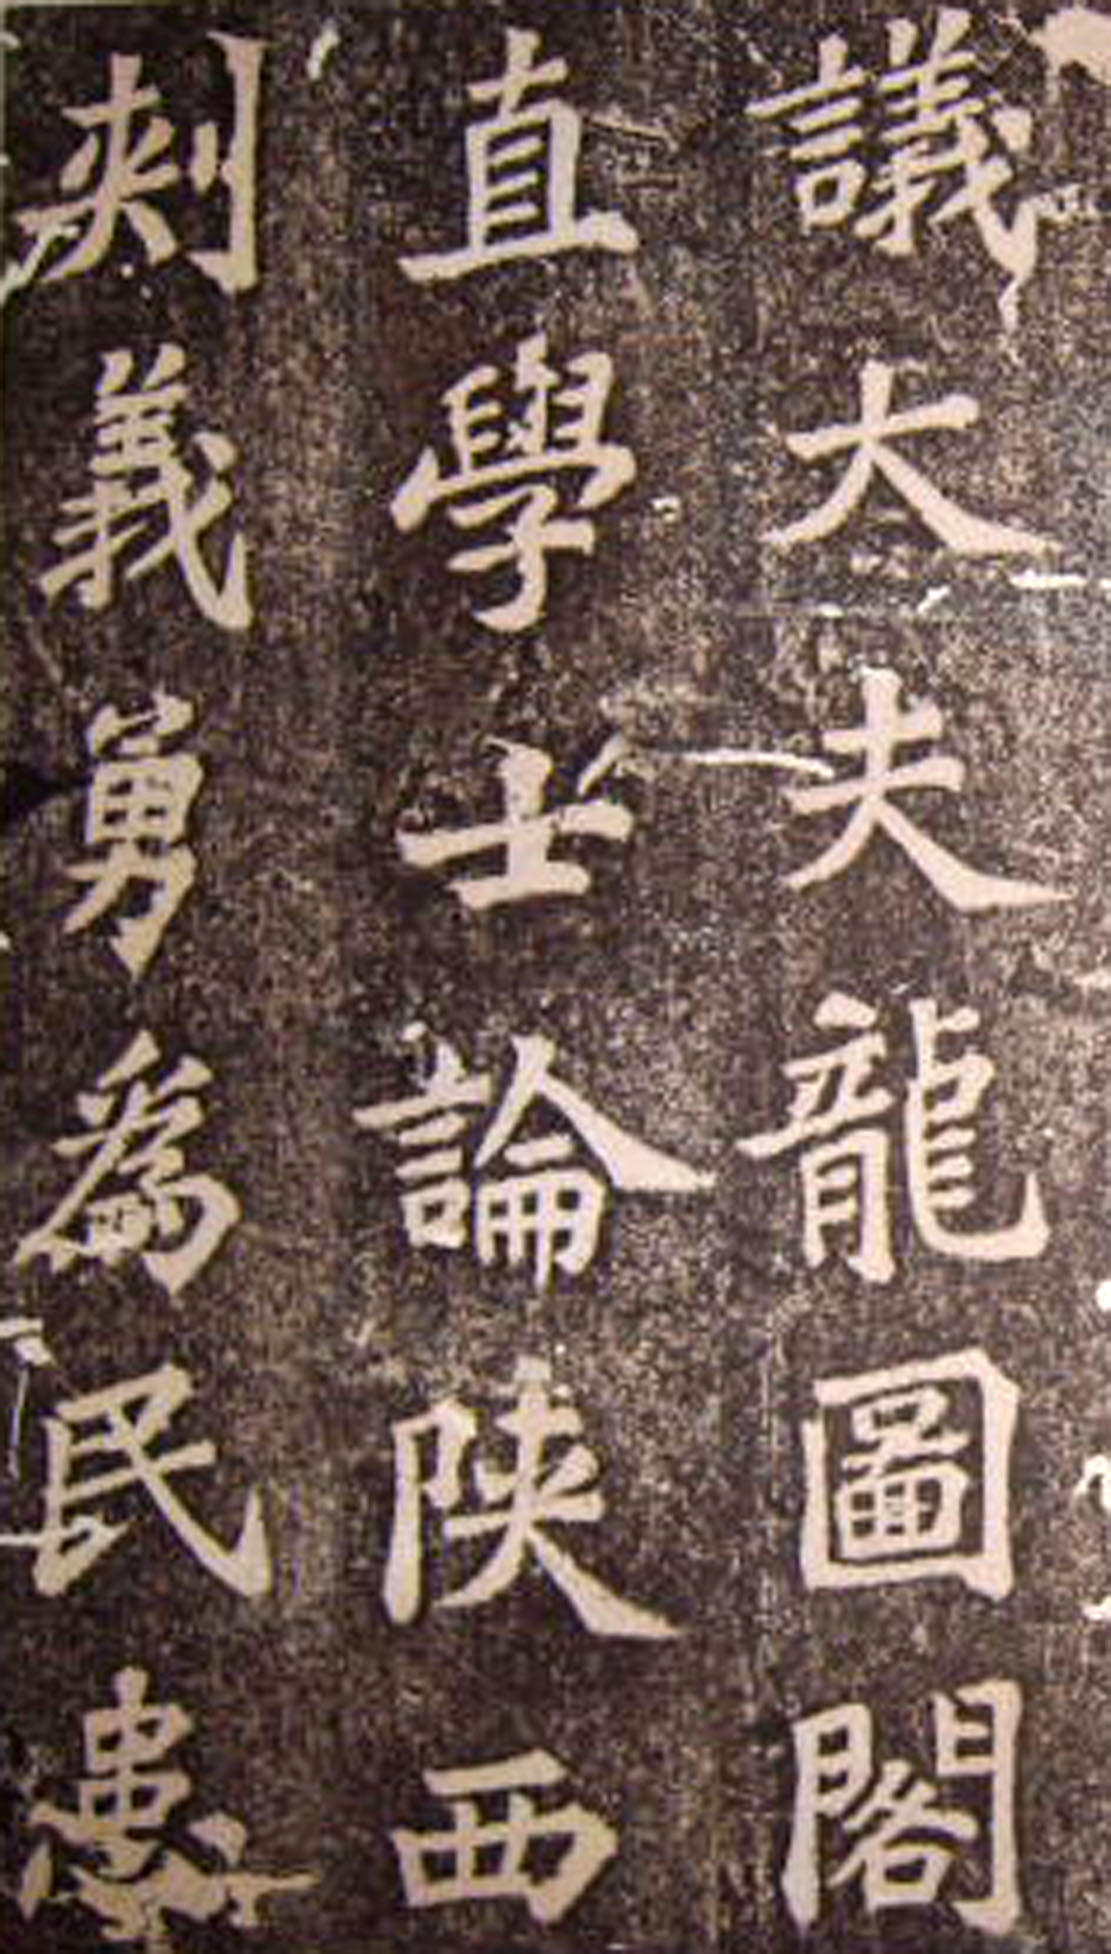 議大夫龍圖閣
直學士論陝西
刺義勇爲民患